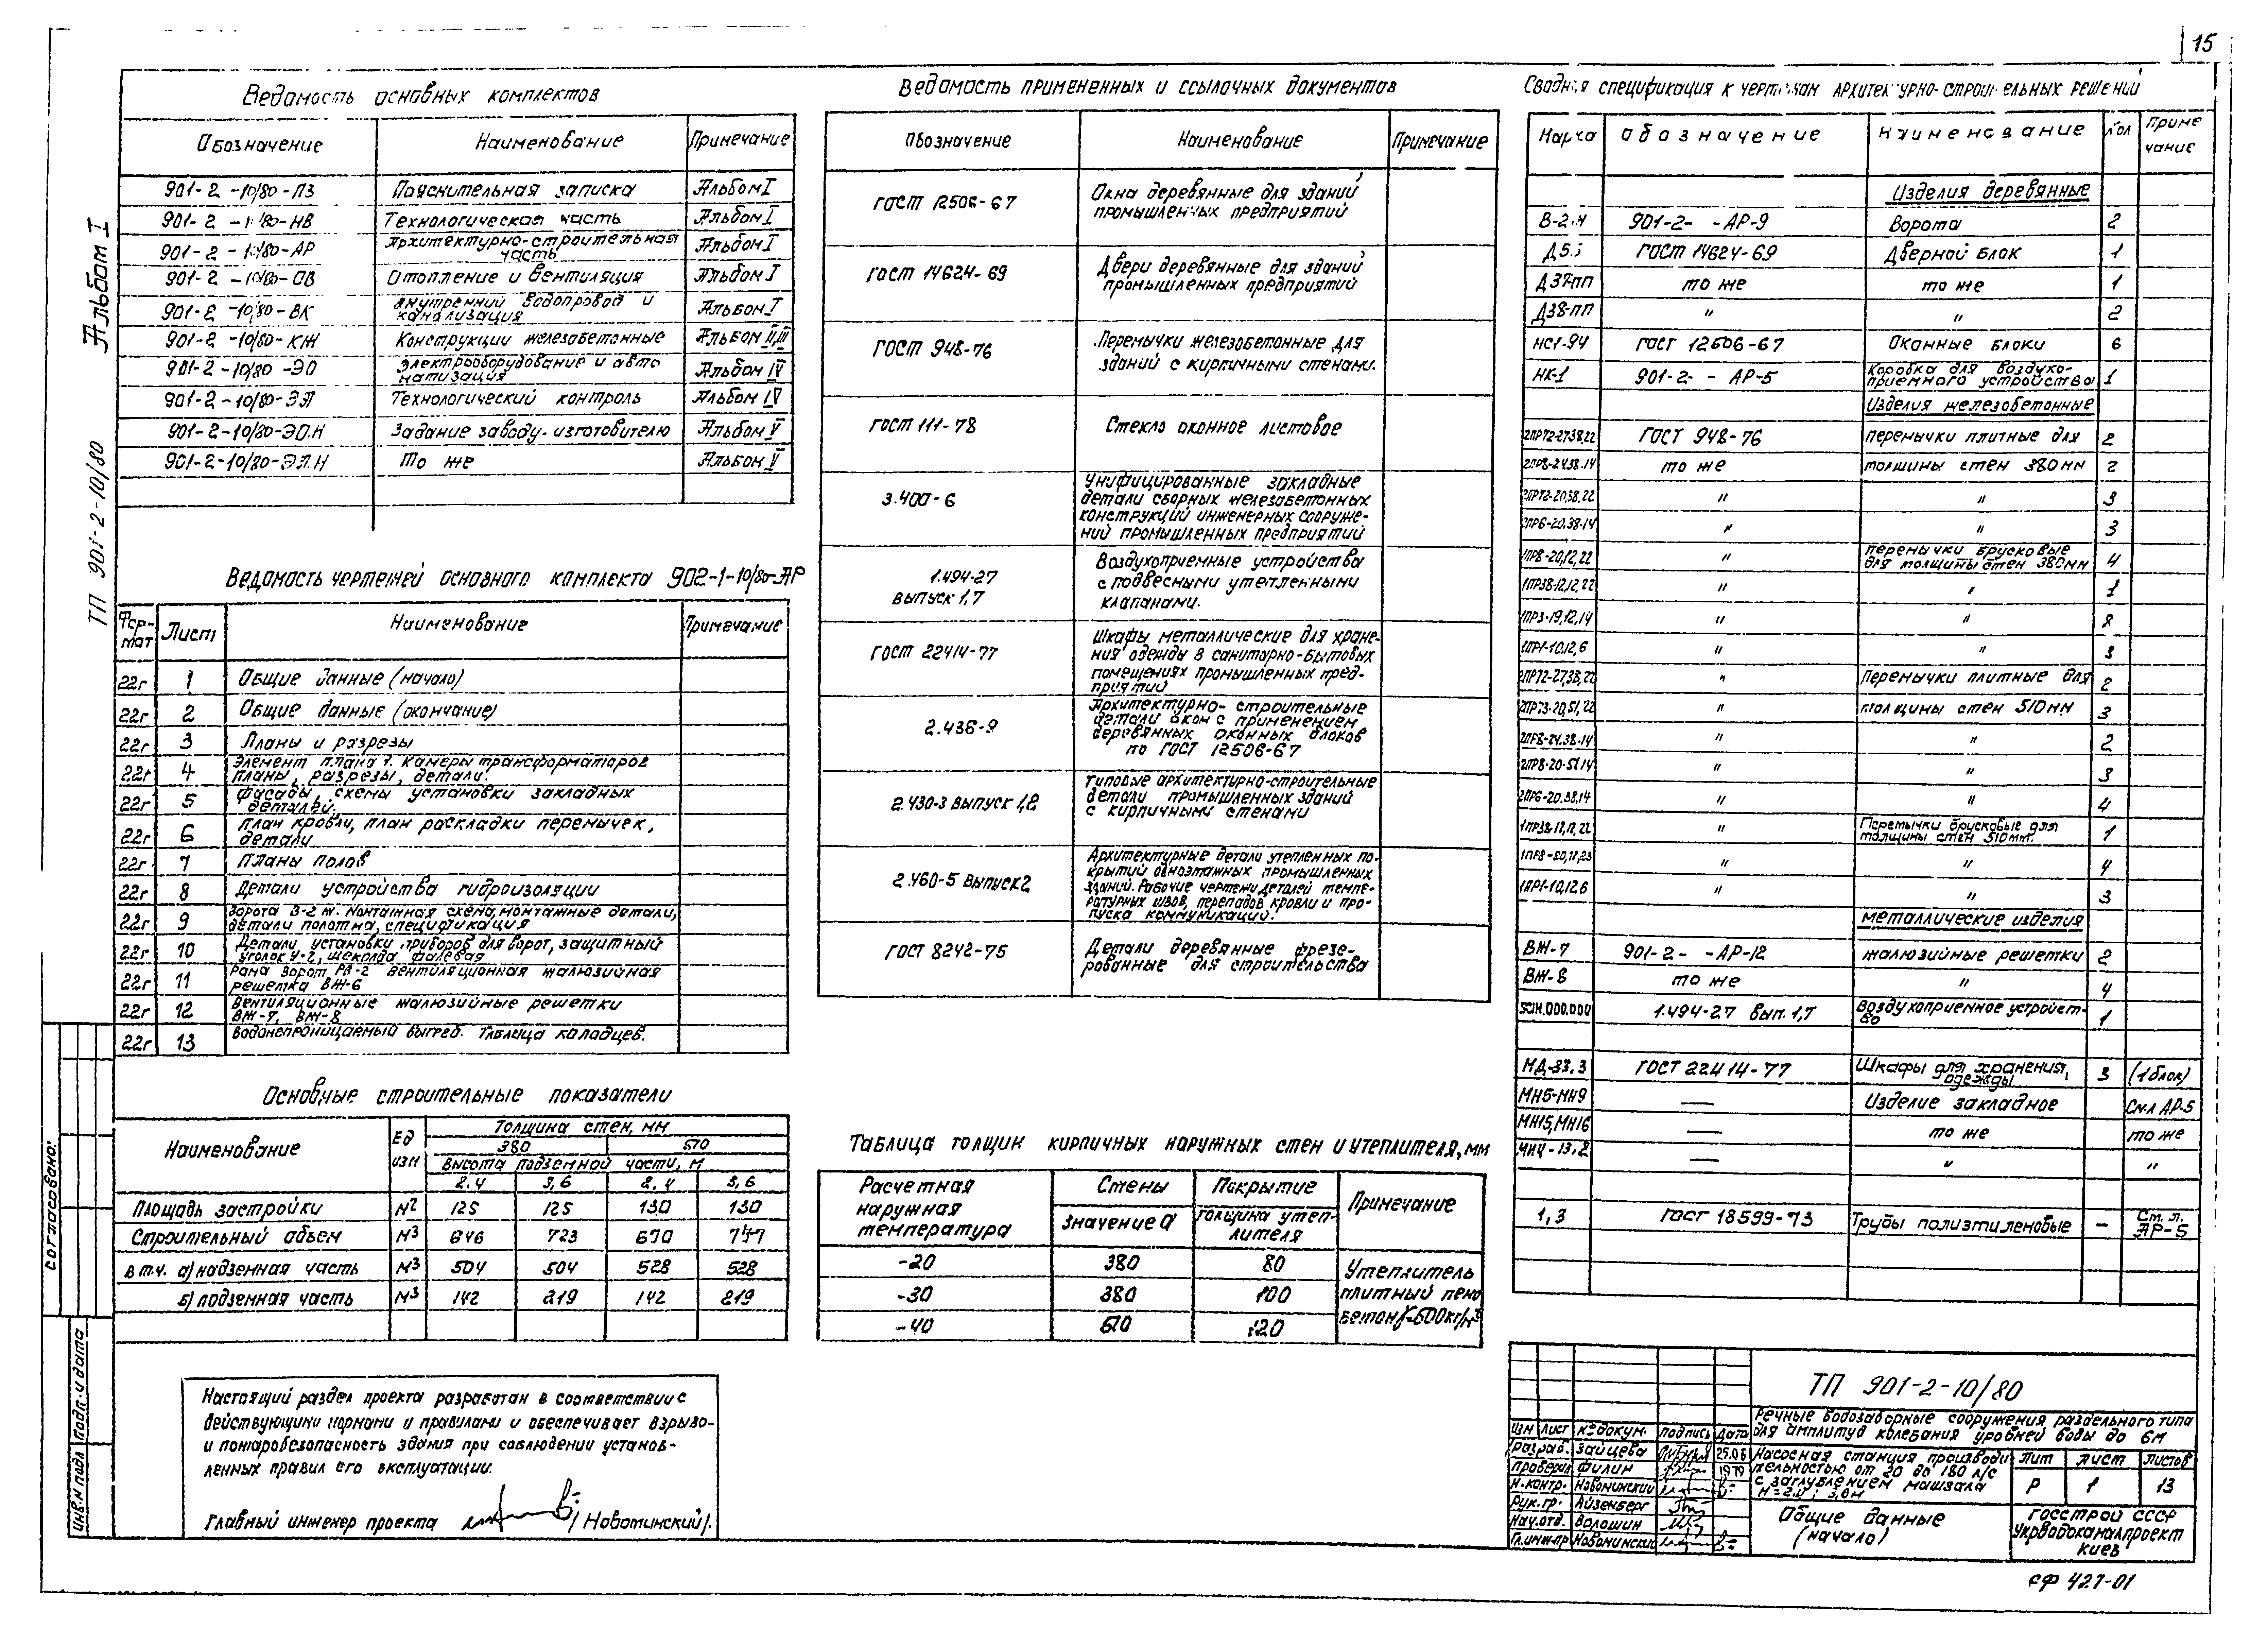 15
Альбом I
ТП 901-2-10/80
Ведомость основных комплектов
Обозначение Наименование Примечание
901-2-10/80-ПЗ Пояснительная записка Альбом I
901-2-10/80-НВ Технологическая часть Альбом I
901-2-10/80-АР Архитектурно-строительная часть Альбом I
901-2-10/80-ОВ Отопление и вентиляция Альбом I
901-2-10/80-ВК Внутренний водопровод и канализация Альбом I
901-2-10/80-КЖ Конструкции железобетонные Альбом II,III
901-2-10/80-ЭО Электрооборудование и автоматизация Альбом IV
901-2-10/80-ЭП Технологический контроль Альбом IV
901-2-10/80-ЭО.Н Задание заводу-изготовителю Альбом V
901-2-10/80-ЭП.Н То же Альбом V
Ведомость чертежей основного комплекта 902-1-10/80-АР
Формат Лист Наименование Примечание
22г 1 Общие данные (начало)
22г 2 Общие данные (окончание)
22г 3 Планы и разрезы
22г 4 Элемент плана 1. Камеры трансформаторов
планы, разрезы, детали.
22г 5 Фасады, схемы установки закладных
деталей.
22г 6 План кровли, план раскладки перемычек,
детали
22г 7 Планы полов
22г 8 Детали устройства гидроизоляции
22г 9 Ворота В-2 м. Монтажная схема, монтажные детали,
детали полотна, спецификация
22г 10 Детали установки приборов для ворот, защитный
уголок У-2, щеколда фалевая
22г 11 Рама ворот РВ-2 вентиляционная жалюзийная
решетка ВЖ-6
22г 12 Вентиляционные жалюзийные решетки
ВЖ-7, ВЖ-8
22г 13 Водонепроницаемый выгреб. Таблица каладцев.
Основные строительные показатели
Наименование Ед изм Толщина стен, мм
380 510
Высота подземной части, м
2.4 3,6 2.4 3,6
Площадь застройки м2 125 125 130 130
Строительный объем м3 646 723 670 747
в т.ч. а) надземная часть м3 504 504 528 528
б) подземная часть м3 142 219 142 219
Настоящий раздел проекта разработан в соответствии с
действующими нормами и правилами и обеспечивает взрыво-
и пожаробезопасность здания при соблюдении установ-
ленных правил его эксплуатации.
Главный инженер проекта /Новоминский/.
Ведомость примененных и ссылочных документов
Обозначение Наименование Примечание
ГОСТ 12506-67 Окна деревянные для зданий
промышленных предприятий
ГОСТ 14624-69 Двери деревянные для зданий
промышленных предприятий
ГОСТ 948-76 Перемычки железобетонные для
зданий с кирпичными стенами.
ГОСТ 111-78 Стекло оконное листовое
3.400-6 Унифицированные закладные
детали сборных железобетонных
конструкций инженерных сооруже-
ний промышленных предприятий
1.494-27
выпуск 1,7
Воздухоприемные устройства
с подвесными утепленными
клапанами.
ГОСТ 22414-77 Шкафы металлические для хране-
ния одежды в санитарно-бытовых
помещениях промышленных пред-
приятий
2.436-9 Архитектурно-строительные
детали окон с применением
деревянных оконных блоков
по ГОСТ 12506-67
2.430-3 Выпуск 1,2 Типовые архитектурно-строительные
детали промышленных зданий
с кирпичными стенами
2.460-5 Выпуск 2 Архитектурные детали утепленных по-
крытий одноэтажных промышленных
зданий. Рабочие чертежи деталей темпе-
ратурных швов, перепадов кровли и про-
пуска коммуникаций.
ГОСТ 8242-75 Детали деревянные фрезе-
рованные для строительства
Таблица толщин кирпичных наружных стен и утеплителя, мм
Расчетная наружная температура Стены Покрытие Примечание
Значение а Толщина утеплителя
-20 380 80 Утеплитель
-30 380 100 плитный пено
-40 510 120 бетон γ=500кг/м3
Сводная спецификация к чертежам архитектурно-строительных решений
Марка Обозначение Наименование Кол Примечание
Изделия деревянные
В-2.4 901-2- -АР-9 Ворота 2
Д5.5 ГОСТ 14624-69 Дверной блок 1
Д37-пп то же то же 1
Д38-пп " " 2
НС1-94 ГОСТ 12506-67 Оконные блоки 6
НК-1 901-2- - АР-5 Коробка для воздухо-
приемного устройства 1
Изделия железобетонные
2ПРТ2-27.38.22 ГОСТ 948-76 перемычки плитные для 2
2ПР8-24.38.14 то же толщины стен 380мм 2
2ПРТ2-20.38.22 " " 3
2ПР6-20.38.14 " " 3
1ПР8-20,12,22 " перемычки брусковые
для толщины стен 380мм 4
1ПР38-12,12,22 " " 1
1ПР3-19,12,14 " " 8
1ПР1-10.12,6 " " 3
2ПРТ2-27,38,22 " Перемычки плитные для 2
2ПРТ3-20,51,22 " толщины стен 510мм 3
2ПР8-24.38.14 " " 2
2ПР8-20-51.14 " " 3
2ПР6-20.38,14 " " 4
1ПР38-12,12,22 " Перемычки брусковые для
толщины стен 510мм. 1
" " 4
1ПР1-10,12.6 " " 3
металлические изделия
ВЖ-7 901-2- -АР-12 жалюзийные решетки 2
ВЖ-8 то же " 4
1.494-27 вып. 1,7 Воздухоприемное устройст-
во 1
МД-33.3 ГОСТ 22414-77 Шкафы для хранения,
одежды 3 (1 блок)
МН5-МН9 — Изделие закладное См.л АР-5
МН15,МН16 — то же то же
— " "
1,3 ГОСТ 18599-73 Трубы полиэтиленовые — См. л.
АР-5
ТП 901-2-10/80
Речные водозаборные сооружения раздельного типа
для амплитуд колебания уровней воды до 6м
Изм Лист № докум. Подпись Дата
Разраб. Зайцева 25.06
Проверил Филин 1979
Н.контр. Новоминский
Рук. гр. Айзенберг
Нач.отд. Волошин
Гл.инж.пр Новоминский
Насосная станция производи
тельностью от 20 до 180 л/с
с заглублением машзала
Лит Лист Листов
Р 1 13
Общие данные
(начало)
Госстрой СССР
Укрводоканалпроект
Киев
СФ 427-01
Согласовано:
Инв.№ подл Подп. и дата